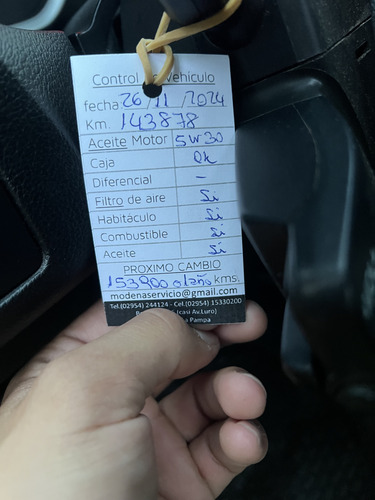 Control de Vehículo
fecha 26 / 11 / 2024
Km. 143878
Aceite Motor 5W30
Caja Ok
Diferencial -
Filtro de aire Si
Habitáculo Si
Combustible Si
Aceite Si
PROXIMO CAMBIO
153900 o 1 año kms.
modenaservicio@gmail.com
Tel.(02954) 244124 - Cel.(02954) 15330200
(casi Av.Luro)
Pampa